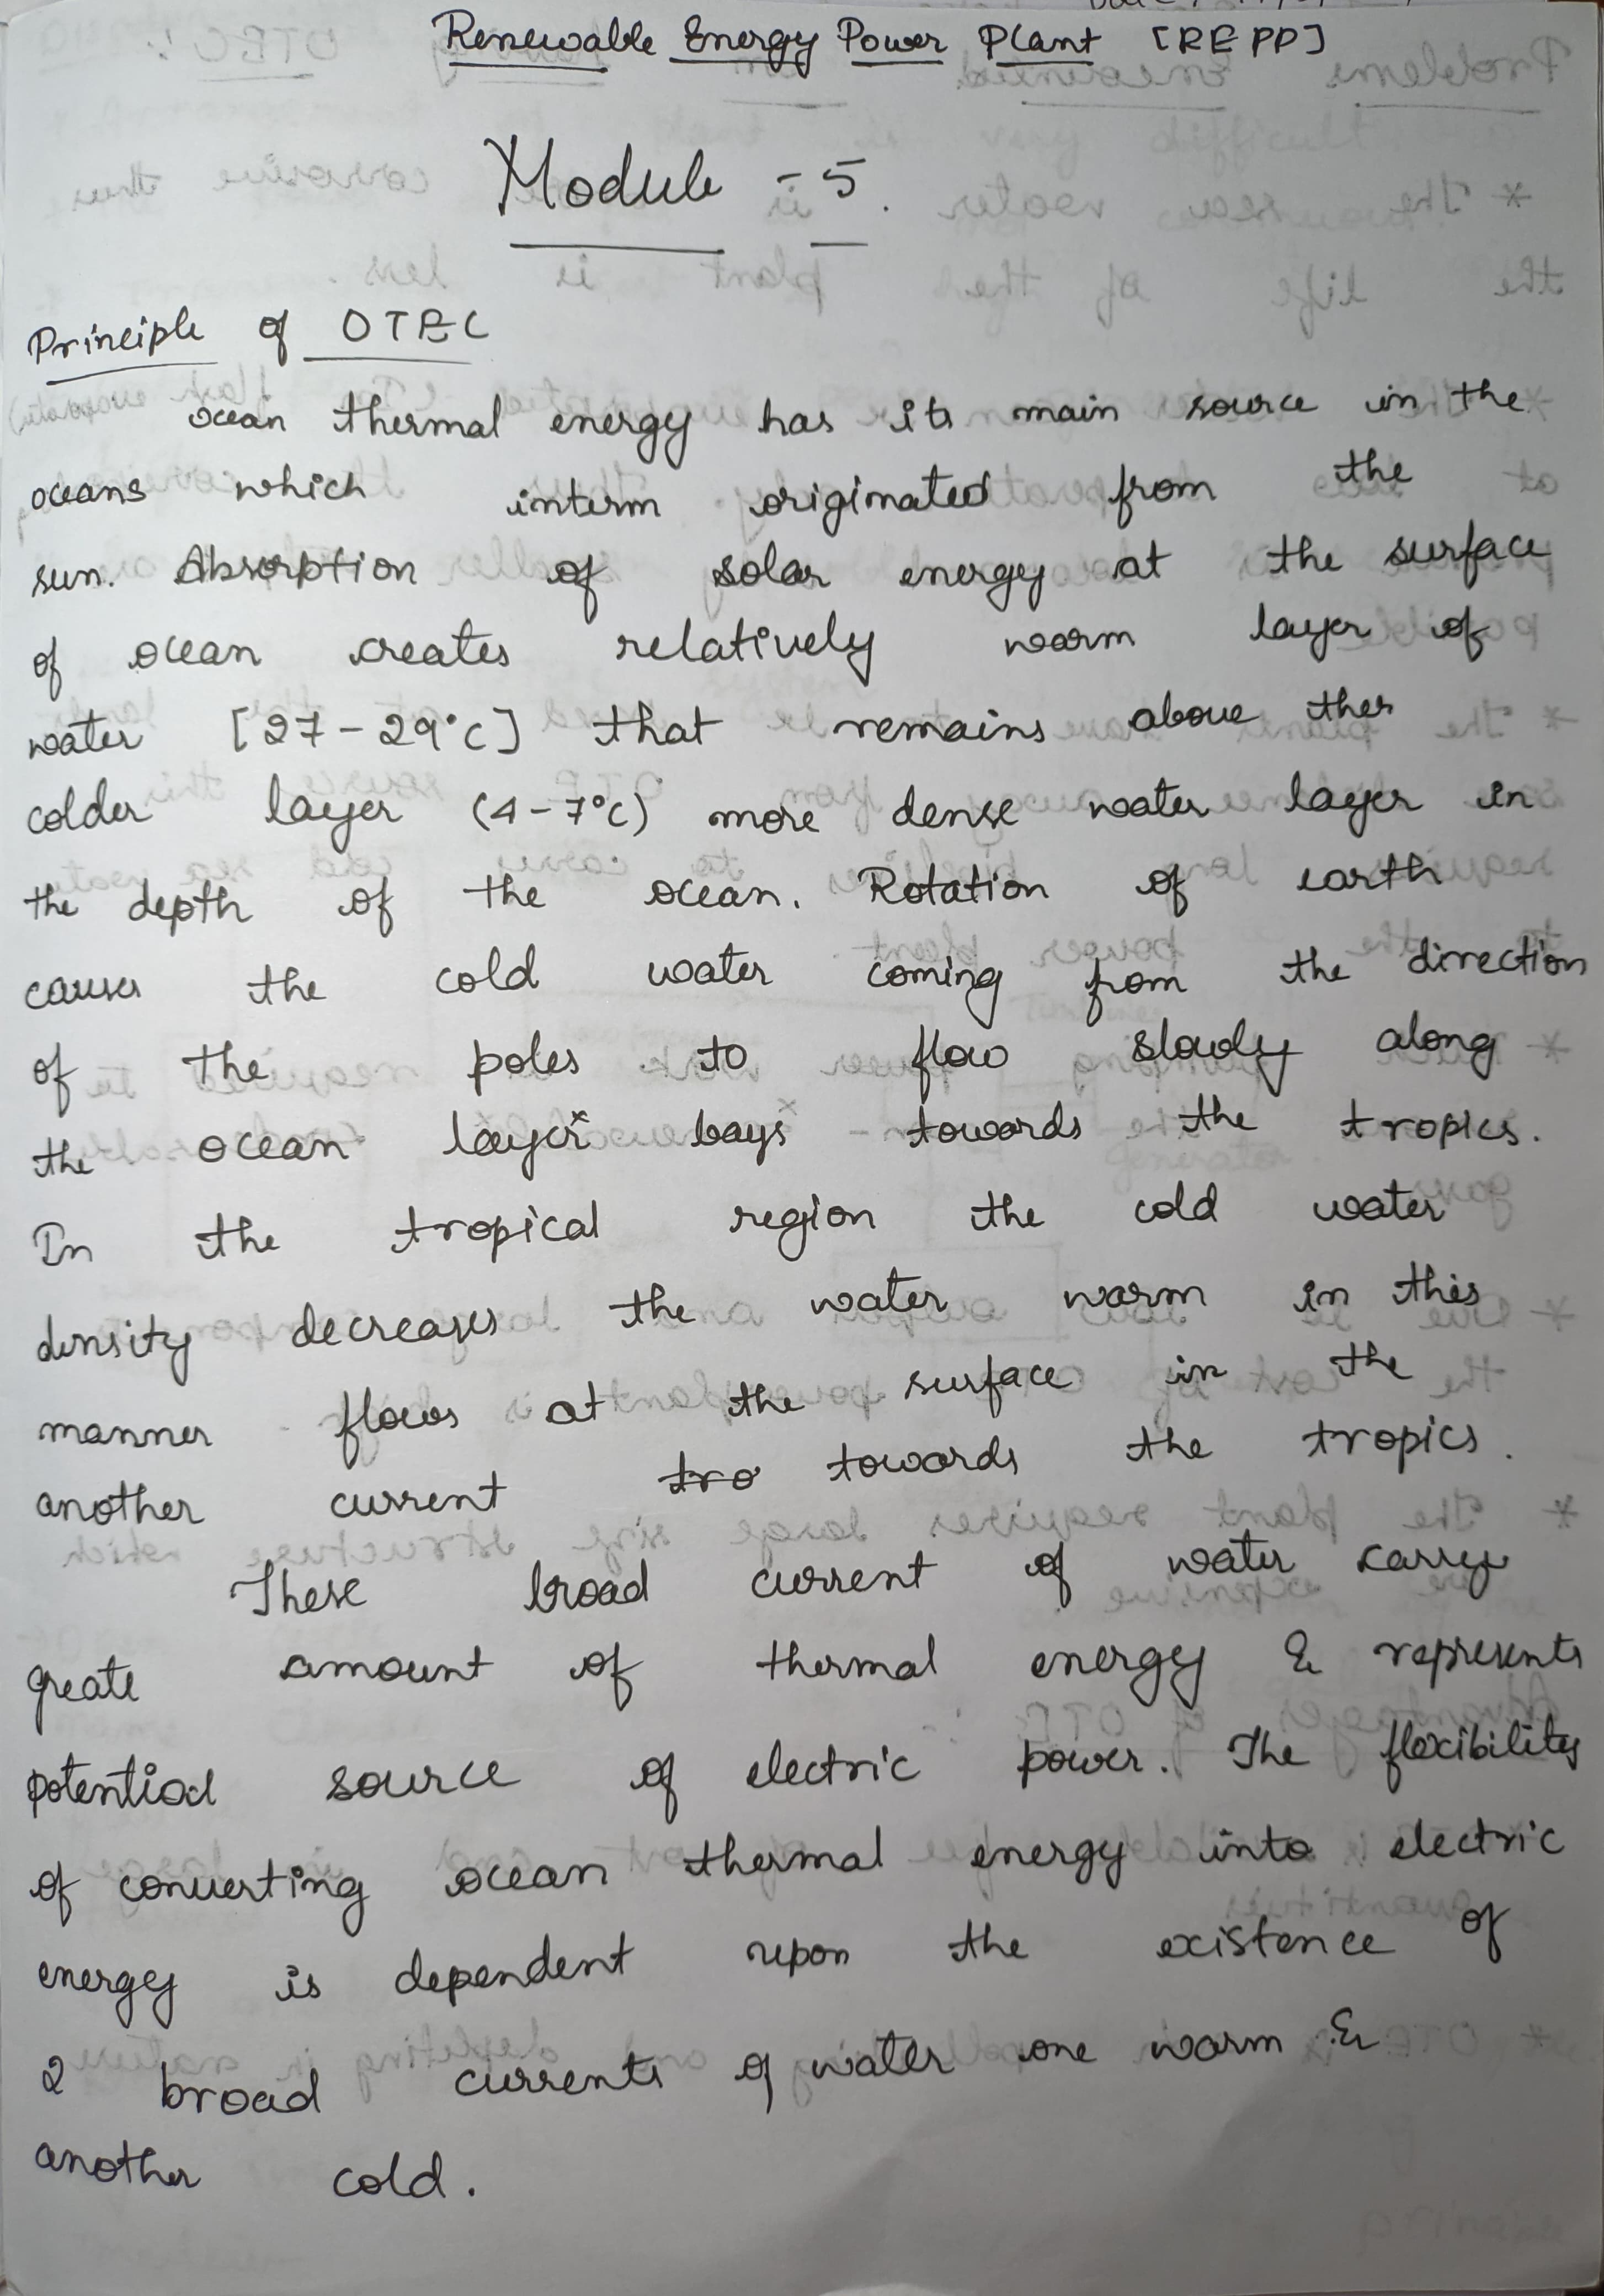 Renewable Energy Power Plant [REPP]
Module - 5.
Principle of OTEC
ocean thermal energy has its main source in the
oceans which interm originated from the
sun. Absorption of solar energy at the surface
of ocean creates relatively warm layer of
water [27-29°C] that remains above ther
colder layer (4-7°C) more dense water layer in
the depth of the ocean. Rotation of earth
causes the cold water coming from the direction
of the poles to flow slowly along
the ocean layer bays towards the tropics.
In the tropical region the cold water
density decreases the water warm in this
manner flows at the surface in the
another current tro towards the tropics.
These broad current of water carry
greate amount of thermal energy & represents
potential source of electric power. The flexibility
of converting ocean thermal energy into electric
energy is dependent upon the existence of
2 broad currents of water one warm &
another cold.